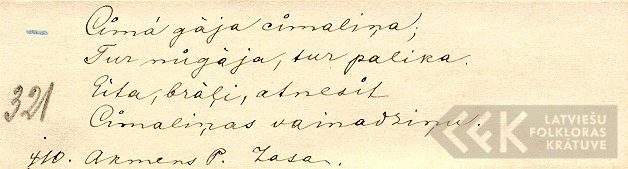 Cîmá gāja cîmaliņa;
Tur nůgāja, tur palika.
Eita, brāļi, atnesit
321
Cîmaliņas vainadziņu.
410. Akmens P. Zasa.
LATVIEŠU
FOLKLORAS
KRĀTUVE